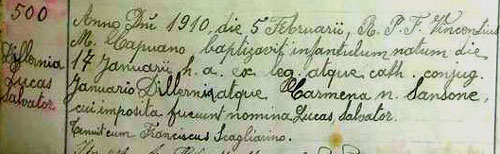 500
Dillernia
Lucas
Salvator
Anno Dñi 1910, die 5 Februarii, R. P. F. Vincentius
M. Capuano baptizavit infantulum natum die
14 Januarii h. a. ex leg. atque cath. conjug.
Januario Dillernia atque Carmena n. Sansone,
cui imposita fucun nomina Lucas Salvator.
Franciscus Scagliarino.